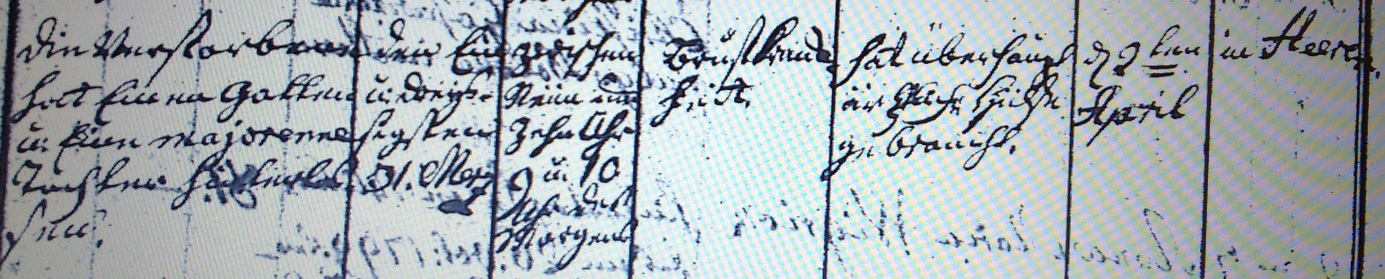 die Verstorbene
hat Einen Gatten
u. Eine majorenne
Tochter hinterlas
sen.
den Ein
u. dreisi-
sigsten
31. Merz
zwischen
Neun und
Zehn Uhr
9 u. 10
Uhr des
Morgens
Brustkrank
heit.
hat überhaupt
ärztliche Hülfe
gebraucht.
d 3ten
April
in Heeren.